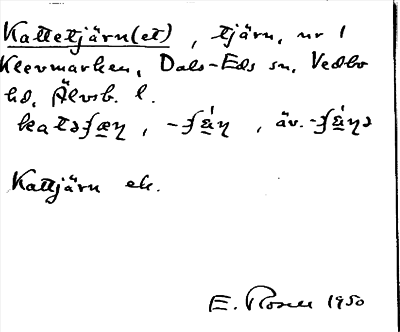 Kattetjärn(et), tjärn, nr 1
Klevmarken, Dals-Eds sn, Vedbo
hd, Älvsb. l.
katəʃæɳ, -ʃǽɳ, äv. -ʃǽɳə
Kattjärn ek.
E. Rosell 1950